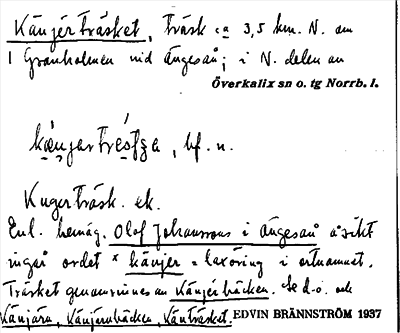 Känjérträsket, Träsk ca 3,5 km. N. om
1 Granholmen vid Ängesån; i N. delen av
Överkalix sn o. tg Norrb. l.
hf. n.
Kngerträsk. ek.
Enl. hemäg. Olof Johansson i Ängesån åsikt
ingår ordet känjer = laxöring i ortnamnet.
Träsket genomrinnes av Känjérbäcken. Se d.o. och
Känjärn, Känjärnbäcken, Känträsket. EDVIN BRÄNNSTRÖM 1937